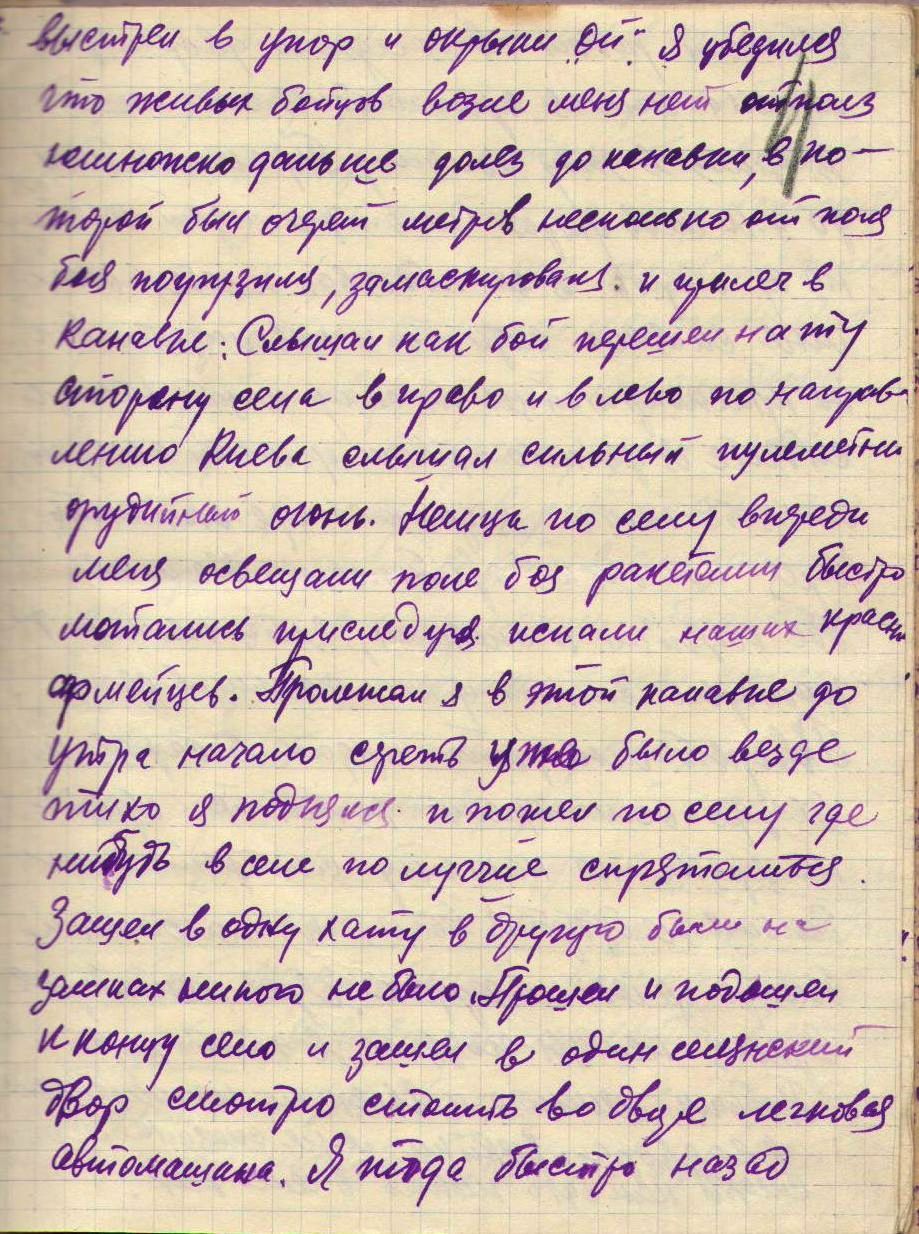 выстрел в упор и окрыки "Ой" я убедился
что живых бойцов возле меня нет отполз
немножко дальше долез до канавки, в ко-
торой был очерет метров несколько от поля
боя погрузился, замаскировался. и прилег в
Канавке. Слышал как бой перешел на ту
сторону села в право и в лево по направ-
лению Киева слышал сильный пулеметни
орудийный огонь. Немцы по селу впереди
меня освещали поле боя ракетами быстро
мотались приследуя искали наших красн
армейцев. Пролежал я в этой канавке до
утра начало сереть уже было везде
тихо я поднялся и пошел по селу где
нибудь в селе по лучше спрятаться.
Зашел в одну хату в другую были на
замках никого не было. Прошел и подошел
к концу село и зашел в один селянский
двор смотрю стоить во дворе легковая
автомашина. Я тогда быстро назад